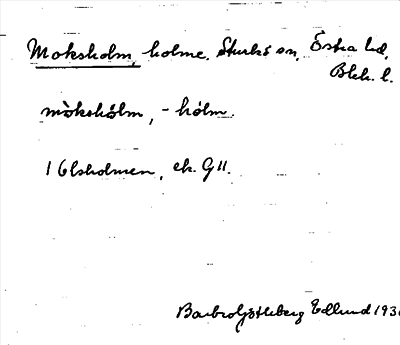 Moksholm, holme. Sturkö sn, Östra hd,
Blek. l.
mòkshólm, - hólm.
1 Ulsholmen, ek. G 11.
Barbro Götleberg Edlund 193